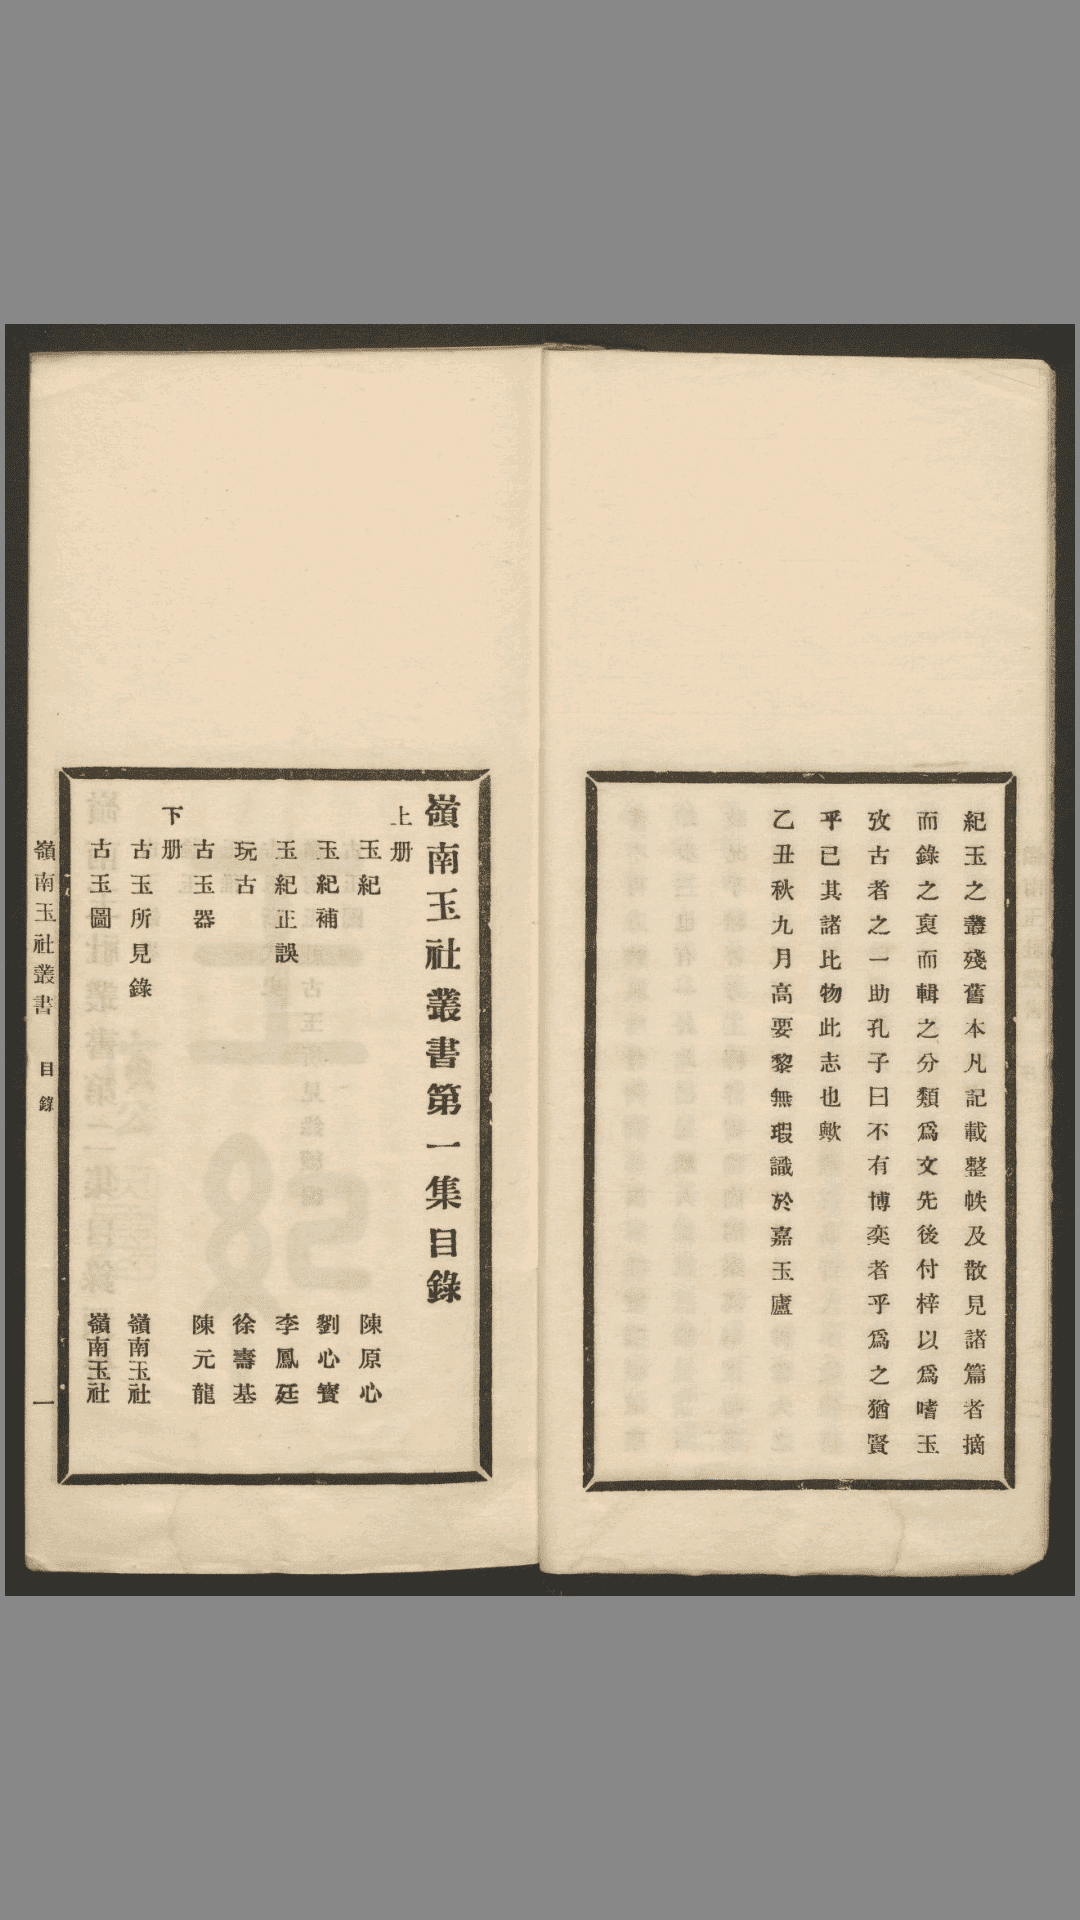 紀玉之叢殘舊本凡記載整帙及散見諸篇者摘
而錄之裒而輯之分類爲文先後付梓以爲嗜玉
攷古者之一助孔子曰不有博奕者乎爲之猶賢
乎已其諸比物此志也歟
乙丑秋九月高要黎無瑕識於嘉玉廬
嶺南玉社叢書第一集目錄
上册
玉紀 陳原心
玉紀補 劉心寶
玉紀正誤 李鳳廷
玩古 徐壽基
古玉器 陳元龍
下册
古玉所見錄 嶺南玉社
古玉圖 嶺南玉社
嶺南玉社叢書 目錄 一